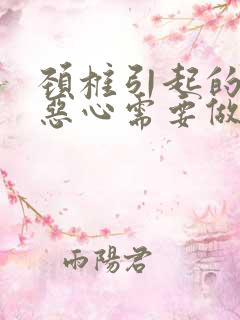 頚椎引起的
惡心需要做
雨陽君